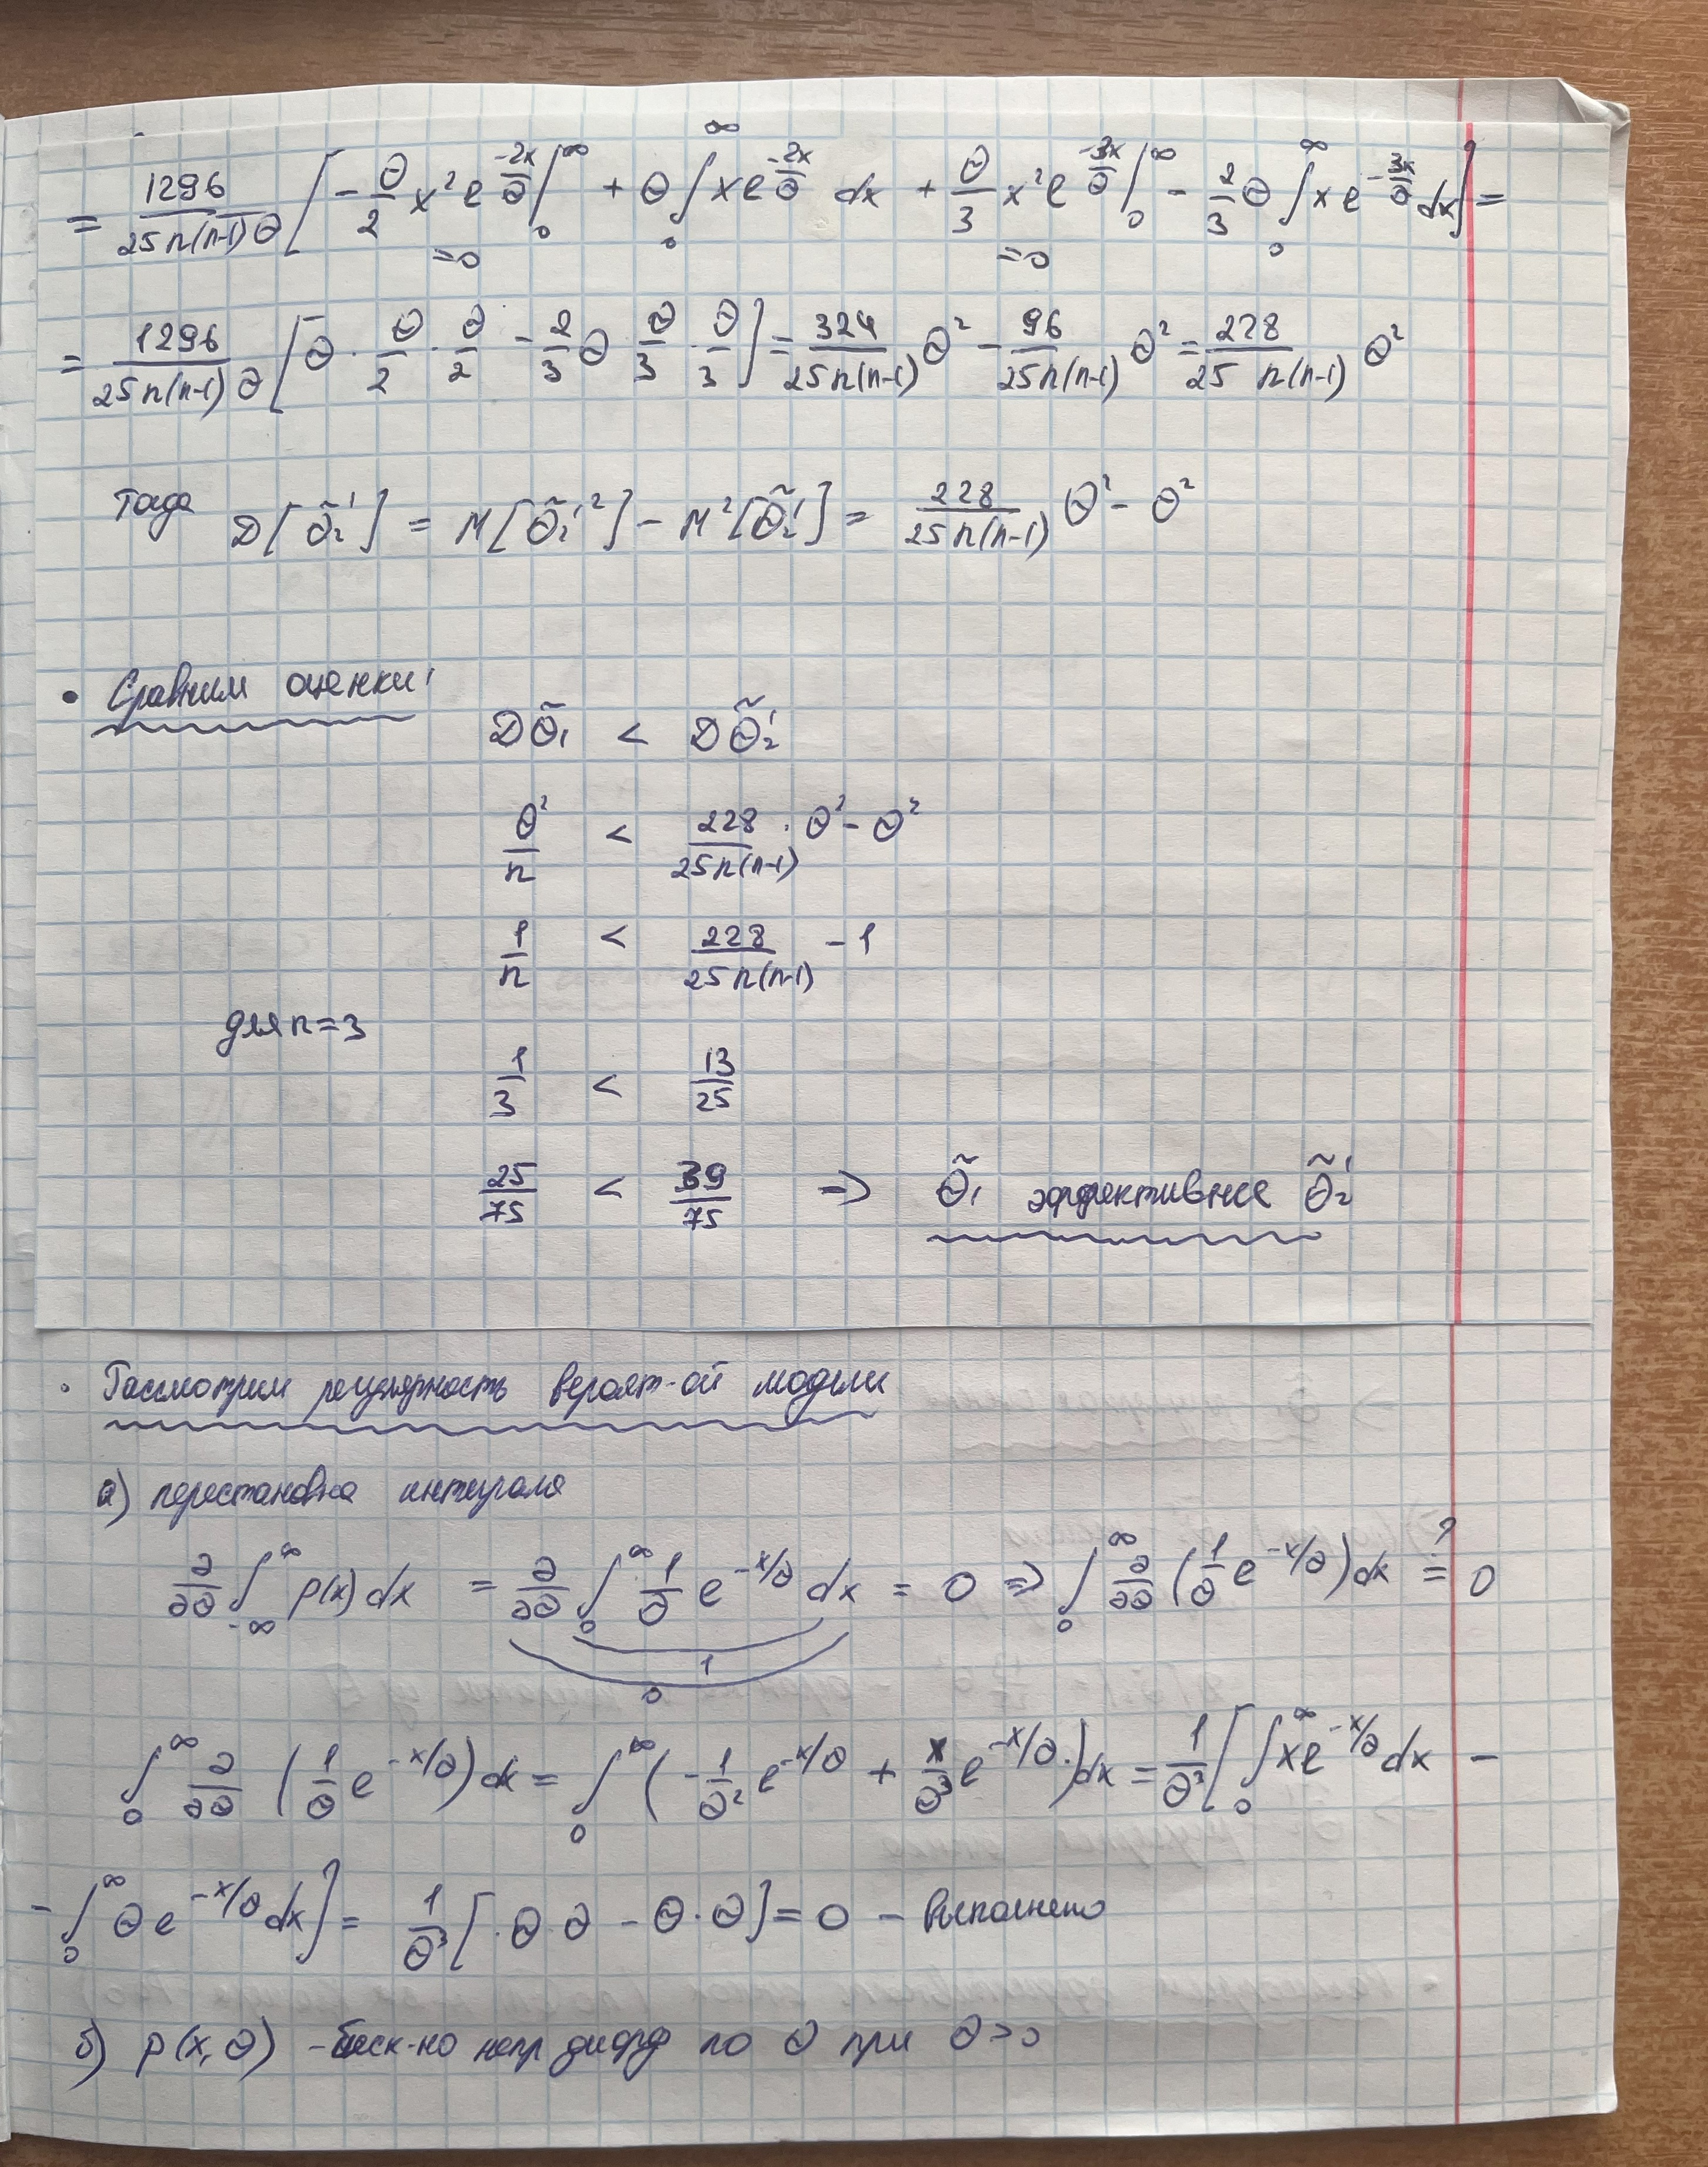 = 1296/(25n(n-1)θ) [ -θ/2 x² e^(-2x/θ) |₀^∞ + θ ∫₀^∞ x e^(-2x/θ) dx + θ/3 x² e^(-3x/θ) |₀^∞ - 2/3 θ ∫₀^∞ x e^(-3x/θ) dx ] =
=0 =0
= 1296/(25n(n-1)θ) [ θ · θ/2 · θ/2 - 2/3 θ θ/3 · θ/3 ] = 324/(25n(n-1)) θ² - 96/(25n(n-1)) θ² = 228/(25 n(n-1)) θ²
Тогда D[θ̃₂'] = M[θ̃₂'²] - M²[θ̃₂'] = 228/(25n(n-1)) θ² - θ²
• Сравним оценки:
Dθ̃₁ < Dθ̃₂'
θ²/n < 228/(25n(n-1)) · θ² - θ²
1/n < 228/(25n(n-1)) - 1
для n=3
1/3 < 13/25
25/75 < 39/75 => θ̃₁ эффективнее θ̃₂'
• Рассмотрим регулярность вероят-ой модели
а) перестановка интеграла
∂/∂θ ∫_{-∞}^∞ p(x) dx = ∂/∂θ ∫₀^∞ 1/θ e^(-x/θ) dx = 0 => ∫₀^∞ ∂/∂θ (1/θ e^(-x/θ)) dx =? 0
1
0
∫₀^∞ ∂/∂θ (1/θ e^(-x/θ)) dx = ∫₀^∞ (-1/θ² e^(-x/θ) + x/θ³ e^(-x/θ)) dx = 1/θ³ [ ∫₀^∞ x e^(-x/θ) dx -
- ∫₀^∞ θ e^(-x/θ) dx ] = 1/θ³ [ · θ · θ - θ · θ ] = 0 - выполнено
б) p(x, θ) - беск-но непр дифф по θ при θ>0